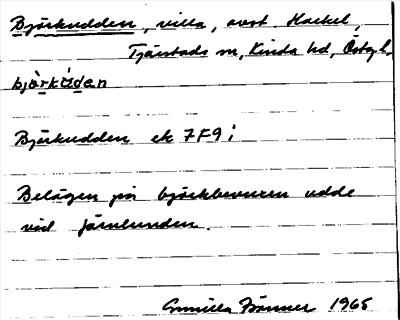 Björkudden, villa, avst. Hackel,
Tjärstads sn, Kinda hd, Östgl.
björkùden
Björkudden ek 7F9i
Belägen på björkbevuxen udde
vid Järnlunden.
Gunilla 1965